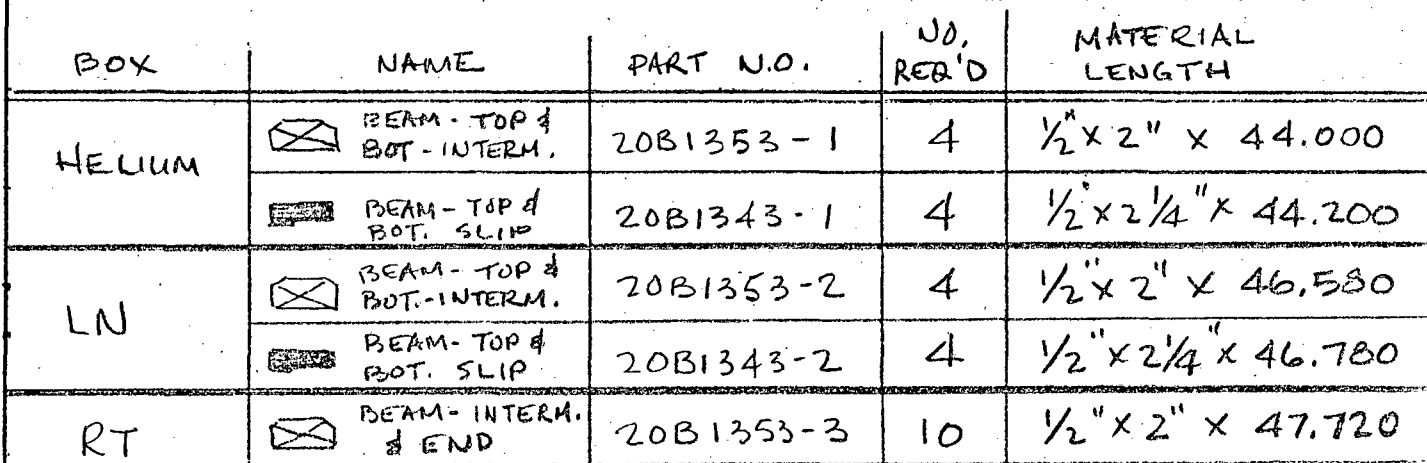 BOX NAME PART N.O. NO. REQ'D MATERIAL LENGTH
HELIUM BEAM - TOP & BOT - INTERM. 20B1353 - 1 4 1/2" x 2" x 44.000
BEAM - TOP & BOT. SLIP 20B1343 - 1 4 1/2" x 2 1/4" x 44.200
LN BEAM - TOP & BOT. - INTERM. 20B1353 - 2 4 1/2" x 2" x 46.580
BEAM - TOP & BOT. SLIP 20B1343 - 2 4 1/2" x 2 1/4" x 46.780
RT BEAM - INTERM. & END 20B1353 - 3 10 1/2" x 2" x 47.720